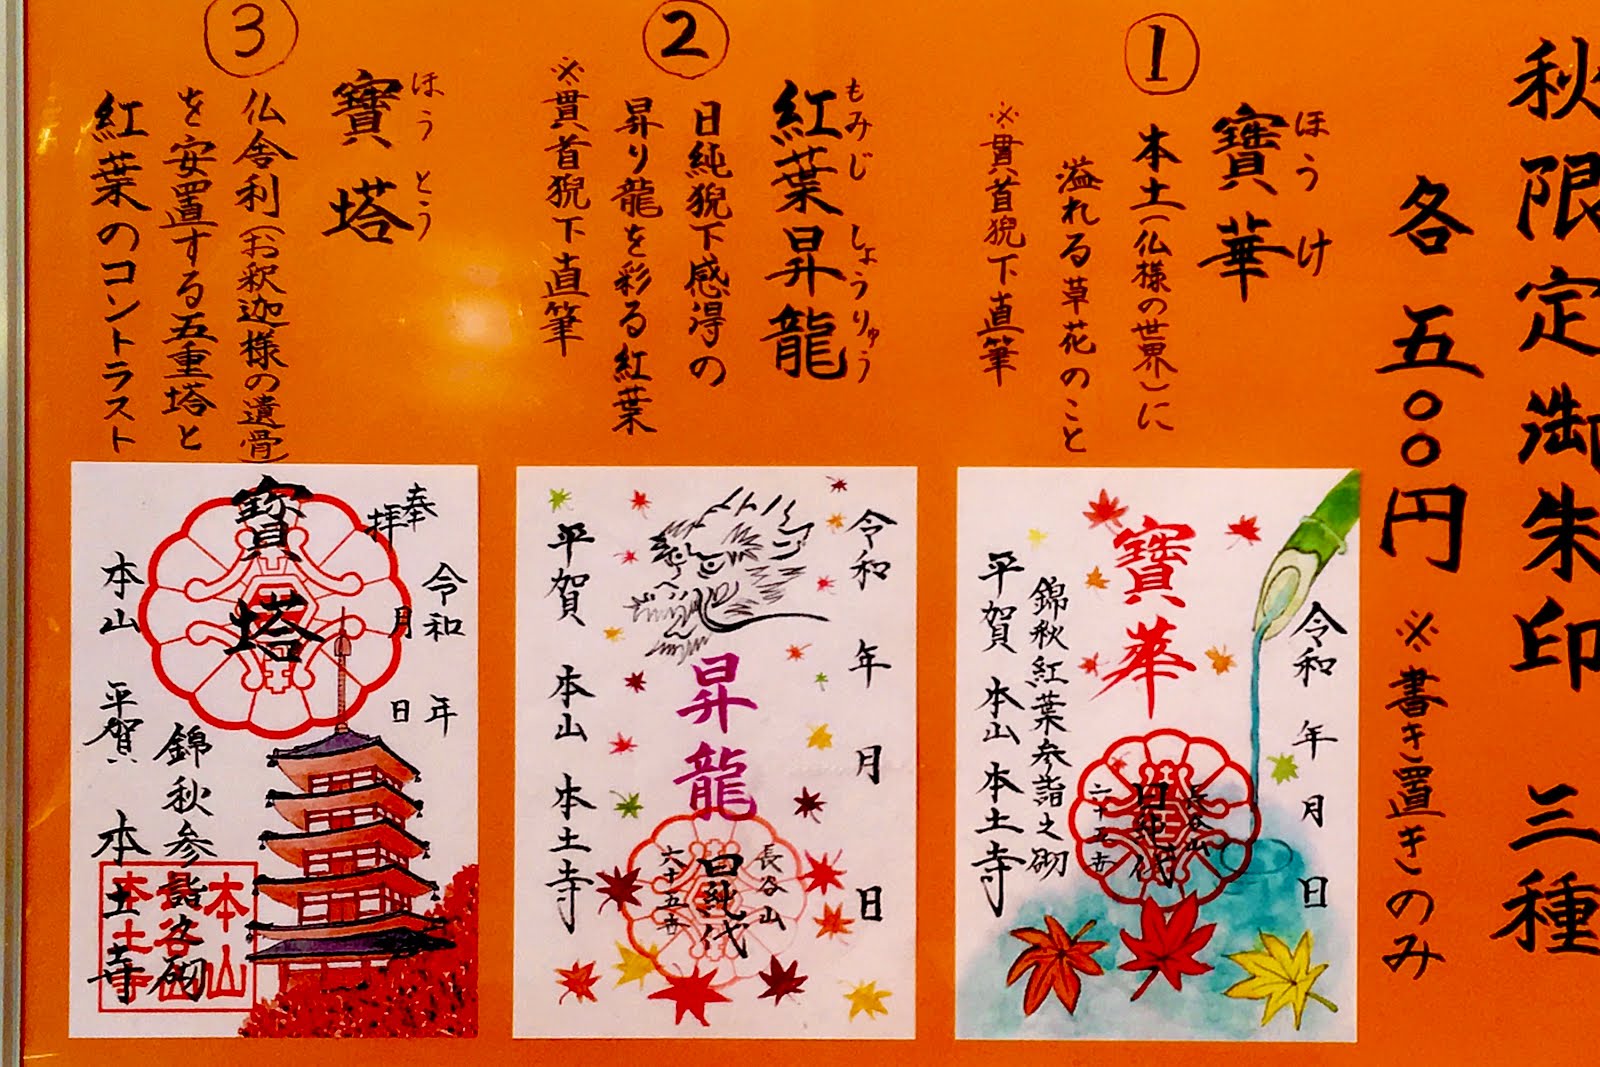 秋限定御朱印 三種
各五〇〇円 ※書き置きのみ
①
寳華
ほうけ
本土(仏様の世界)に
溢れる草花のこと
※貫首猊下直筆
②
紅葉昇龍
もみじ しょうりゅう
日純猊下感得の
昇り龍を彩る紅葉
※貫首猊下直筆
③
寳塔
ほうとう
仏舎利(お釈迦様の遺骨)
を安置する五重塔と
紅葉のコントラスト
令和 年 月 日
寳華
長谷山
日純代
錦秋紅葉参詣之砌
平賀 本山 本土寺
令和 年 月 日
昇龍
長谷山
日純代
六十五世
平賀 本山 本土寺
奉拝
令和 年
月 日
寳塔
錦秋参詣之砌
本山 平賀 本土寺
本山
本土寺